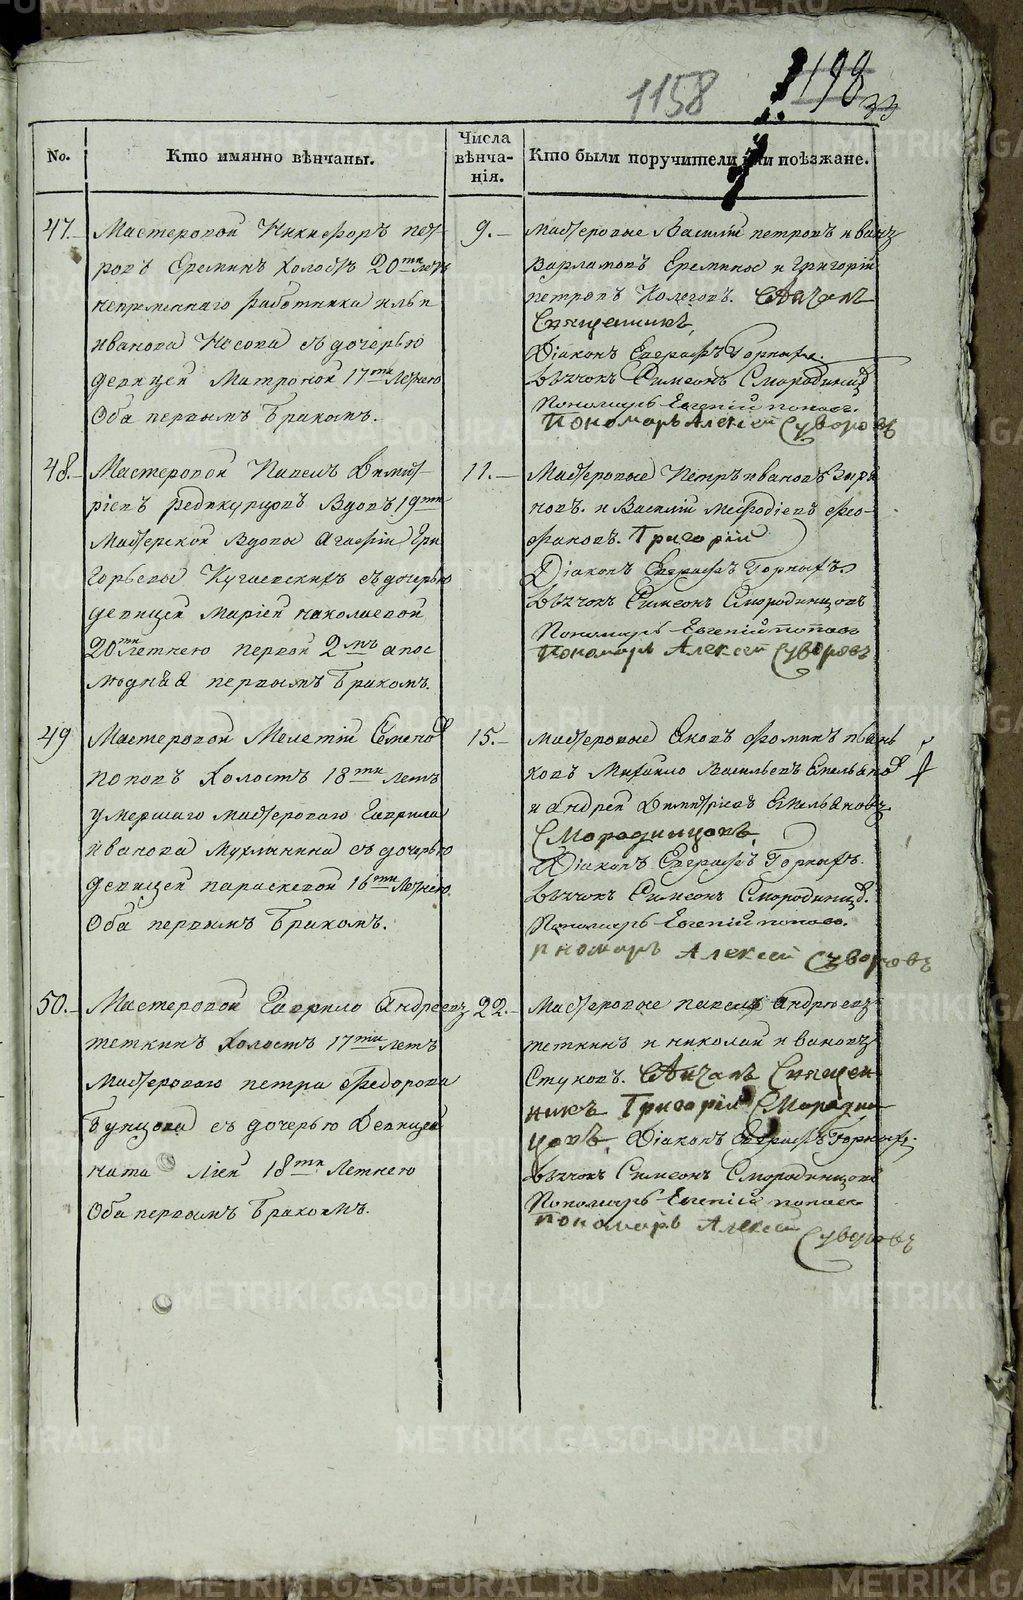 1158
1198
33
No.
Кто имянно вѣнчаны.
Числа
вѣнча-
нія.
Кто были поручители или поѣзжане.
47.
Мастеровой Никифоръ пет-
ровъ Ереминъ холостъ 20ти лѣтъ
непременнаго работника ильи
иванова Носова съ дочерью
девицей Матроной 17ти Летнею
Оба первымъ бракомъ.
9.
мастеровые Василий петровъ и иванъ
Варламовъ Еремины и Григорій
петровъ Колеговъ.
Священникъ
Діаконъ Евграфъ Горныхъ.
Дьячокъ Симеонъ Смородинцо
Пономарь Евгений поповъ.
Пономарь Алексей Суворовъ
48.
Мастеровой Павелъ Димит-
ріевъ редикурцовъ Вдовъ 19ти
Мастерской Вдовы Агафіи Гри
горьевы Кугаевскихъ съ дочерью
девицей Маріей николаевой
20ти летнею первой 2мъ а пос
людняя первымъ бракомъ.
11.
Мастеровые Петръ ивановъ Зыря
новъ. и Василий мефодіевъ фео-
фановъ. Григорій
Діаконъ Евграфъ Горныхъ.
Дьячокъ Симеонъ Смородинцовъ
Пономарь Евгеній поповъ
Пономарь Алексей Суворовъ
49
Мастеровой Мелетій Семенов
поповъ холостъ 18ти летъ
умершаго мастероваго Гаврила
иванова съ дочерью
девицей параскевой 16ти Летнею.
Оба первымъ бракомъ.
15.
мастеровые Яковъ фоминъ пьян
ковъ Михайло Васильевъ Емельянов
и андрей Димитріевъ Емельяновъ
Смородинцовъ
Діаконъ Евграфъ Горныхъ.
Дьячокъ Симеонъ Смородинцо.
Пономарь Евгений поповъ.
пономарь Алексей Суворовъ
50.
Мастеровой Гаврило Андреевъ
теткинъ холостъ 17ти летъ
Мастероваго петра федорова
Бунцова съ дочерью Девицей
ната ліей 18ти Летнею
Оба первымъ бракомъ.
22.
Мастеровые павелъ андреевъ
теткинъ и николай ивановъ
Стуковъ. Священ-
никъ Григорій Смородин
цовъ. Діаконъ Евграфъ Горныхъ.
Дьячокъ Симеонъ Смородинцовъ
Пономарь Евгений поповъ
пономарь Алексей
Суворовъ
METRIKI.GASO-URAL.RU